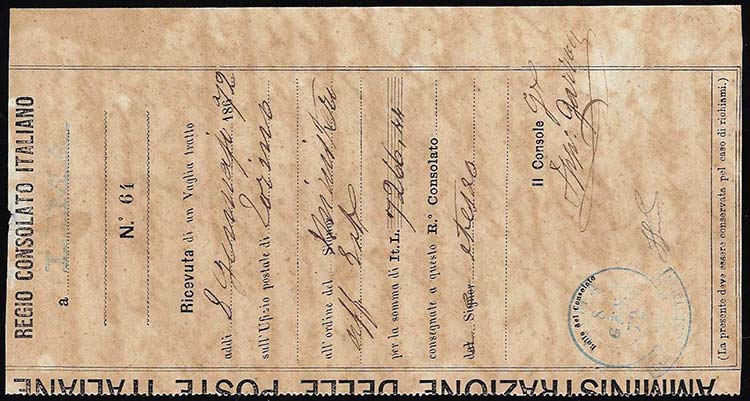 REGIO CONSOLATO ITALIANO
a
N.° 64
Ricevuta di un Vaglia tratto
addì 8 Gennajo 1872
sull'Ufizio postale di Torino
all'ordine del Signor Ministero
aff. Est.
per la somma di It. L. 7266,44
consegnate a questo R.° Consolato
dal Signor stesso
Il Console
(La presente deve essere conservata pel caso di richiami.)
Bollo del Consolato
AMMINISTRAZIONE DELLE POSTE ITALIANE